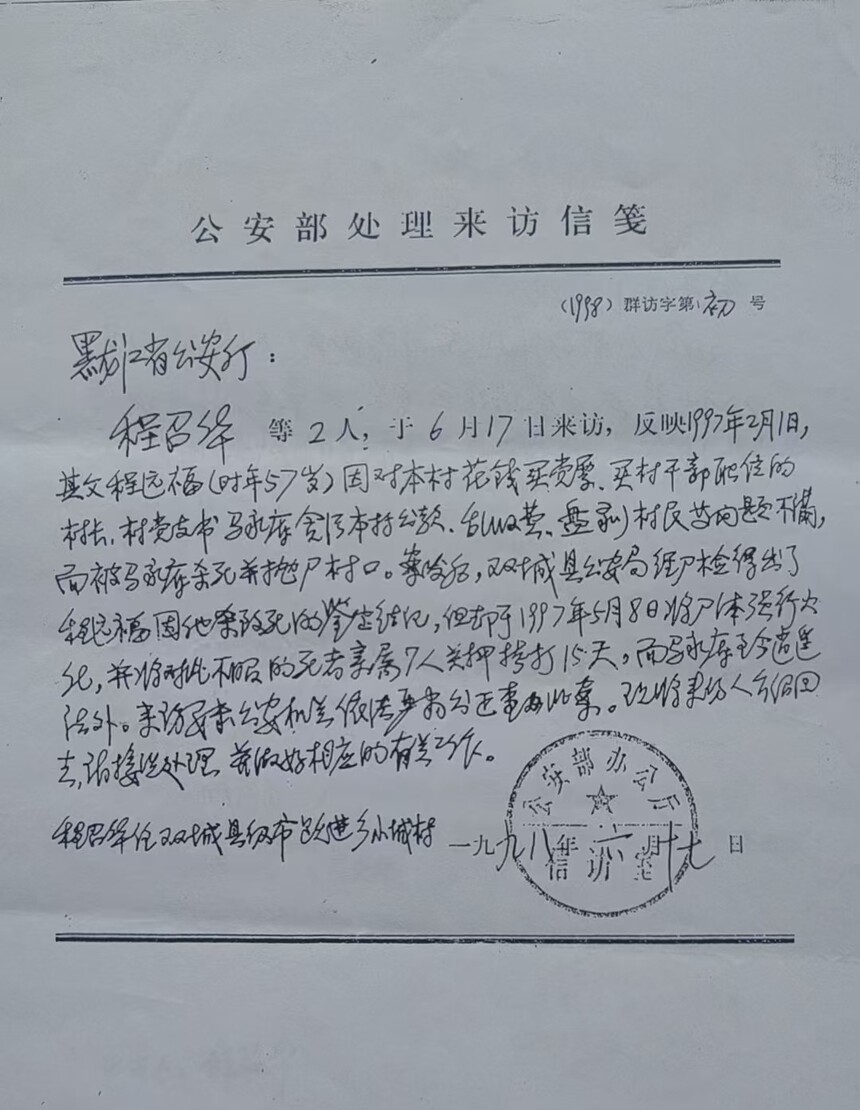 公安部处理来访信笺
(1998)群访字第初号
黑龙江省公安厅：
程召华 等2人，于6月17日来访，反映1997年2月1日，
其父程远福(时年57岁)因对本村花钱买党票、买村干部职位的
村长、村党支书马永库贪污本村公款、乱收费、盘剥村民等问题不满，
而被马永库杀死并抛尸村口。案发后，双城县公安局经尸检得出了
程远福因他杀致死的鉴定结论，但却于1997年5月8日将尸体强行火
化，并将对此不服的死者亲属7人关押拷打15天，而马永库至今逍遥
法外。来访要求公安机关依法严肃公正查办此案。现将来访人介绍回
去，请接谈处理，并做好相应的有关工作。
程召华住双城县级市跃进乡小城村
一九九八年六月十七日
公安部办公厅
信访室